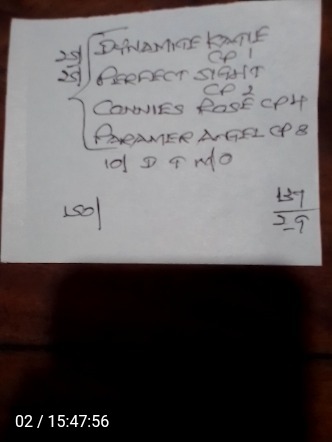 25/ DYNAMITE KATIE
CP 1
25/ PERFECT SIGHT
CP 2
CONNIES ROSE CP4
ANGEL CP 8
10/ D T M/O
150/
2-9
02 / 15:47:56